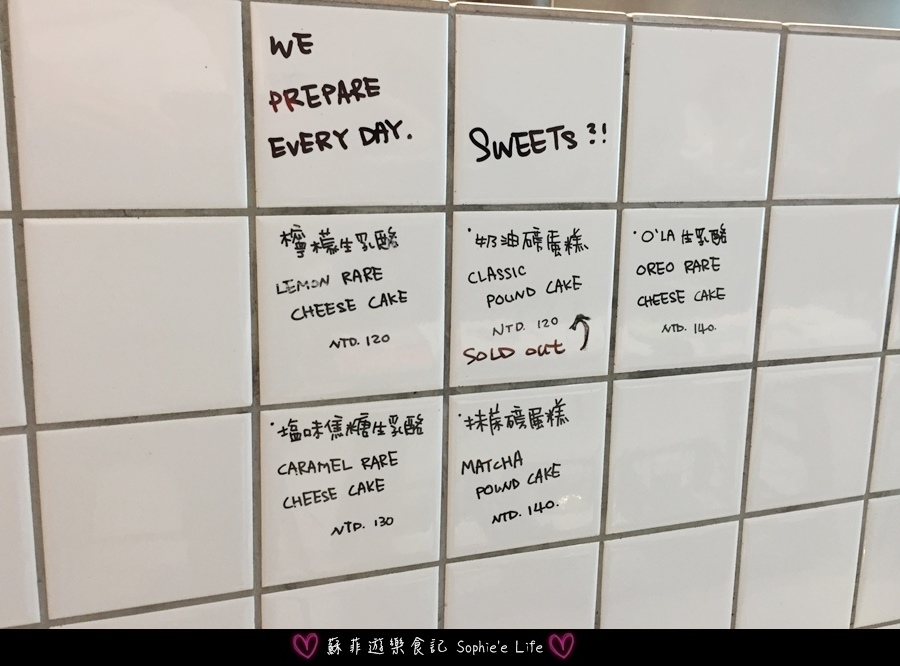 WE
PREPARE
EVERY DAY.
SWEETS ?!
檸檬生乳酪
LEMON RARE
CHEESE CAKE
NTD. 120
·奶油磅蛋糕
CLASSIC
POUND CAKE
NTD. 120
SOLD OUT
·O'LA 生乳酪
OREO RARE
CHEESE CAKE
NTD. 140.
·塩味焦糖生乳酪
CARAMEL RARE
CHEESE CAKE
NTD. 130
·抹茶磅蛋糕
MATCHA
POUND CAKE
NTD. 140.
蘇菲遊樂食記 Sophie'e Life